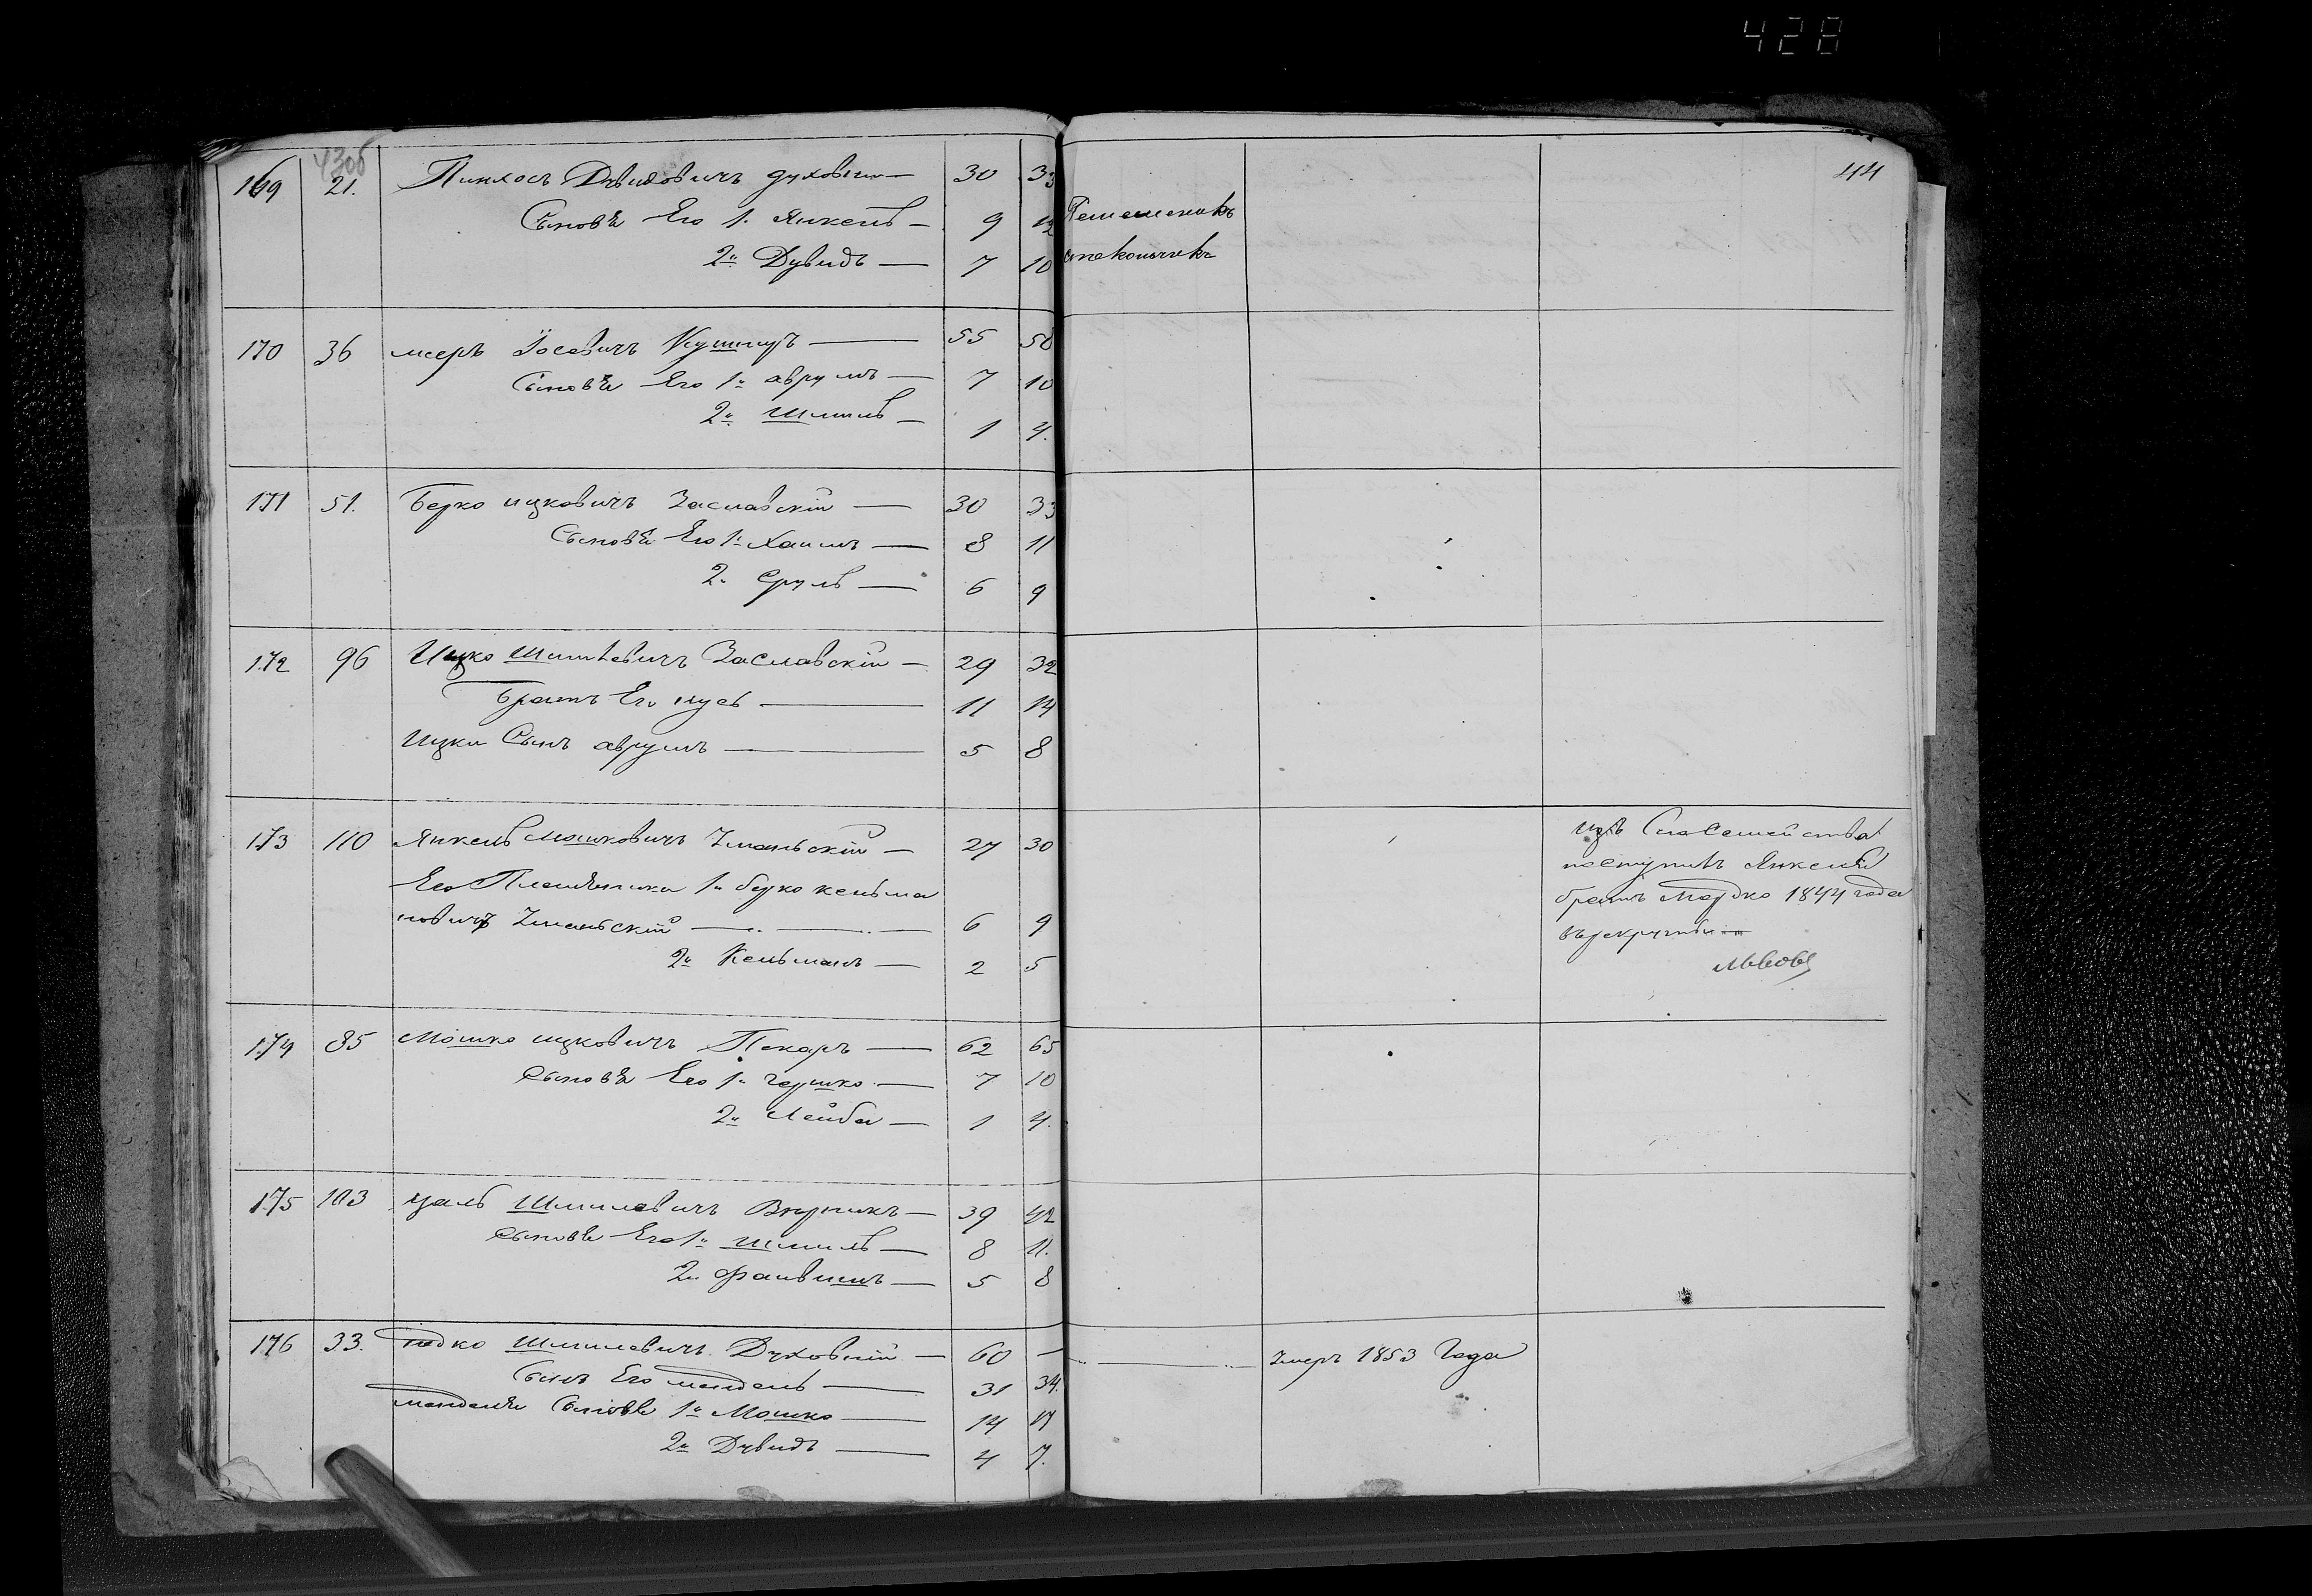 428
43об
44
169 21. Пинхосъ Дувидовичъ Духовны — 30 33 Ремесленикъ
Сыновѣя Его 1. Янкель — 9 12 стекольчикъ
2й Дувидъ — 7 10
170 36 мееръ Іосевичъ Кушниръ — 55 58
Сыновѣя Его 1й аврумъ — 7 10
2й Шмиль — 1 4.
171 51. Берко ицковичъ Заславскій — 30 33
Сыновѣя Его 1й Хаимъ — 8 11
2й Сруль — 6 9
172 96 Ицко Шмилевичъ Заславскій — 29 32
Братъ Его нусь — 11 14
Ицки Сынъ аврумъ — 5 8
173 110 Янкель Мошковичъ Уманьскій — 27 30
Его Племѣнники 1й берко кельма
новичъ Уманьскій — 6 9
2й Кельманъ — 2 5
изъ Сего Семейства
поступилъ Янкеля
братъ Мордко 1844 года
въ рекруты
Львовъ
174 85 Мошко ицковичъ Пекаръ — 62 65
Сыновѣя Его 1й гершко — 7 10
2й Лейба — 1 4.
175 103 Шмилевичъ — 39 42
Сыновѣя Его 1й Шмиль — 8 11.
2й Фаивишъ — 5 8
176 33. Іодко Шмилевичъ Духовній — 60 — Умеръ 1853 Года
Сынъ Его мендель — 31 34.
менделя Сыновѣя 1й Мошко — 14 17
2й Дувидъ — 4 7.